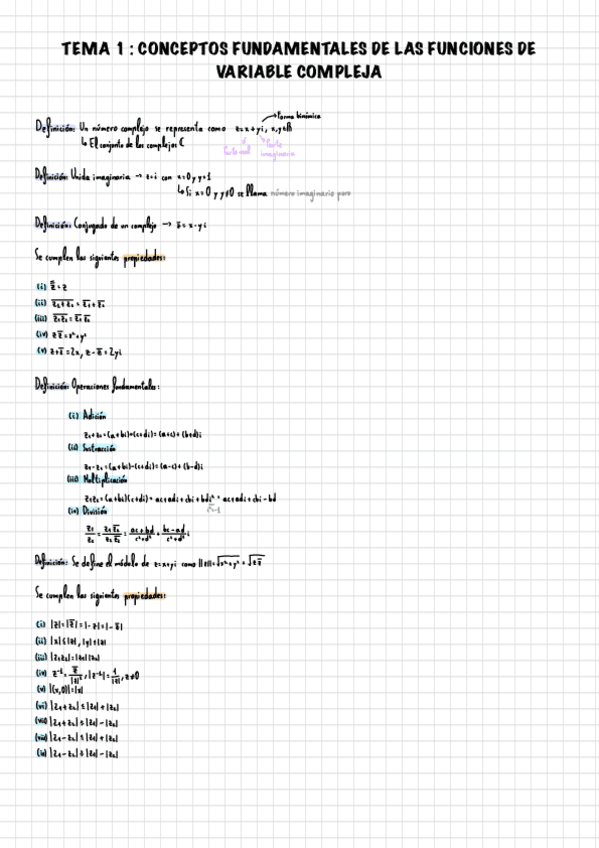 TEMA 1 : CONCEPTOS FUNDAMENTALES DE LAS FUNCIONES DE
VARIABLE COMPLEJA
Forma binómica
Definición: Un número complejo se representa como z=x+yi, x,y∈ℝ
↳ El conjunto de los complejos ℂ
Parte real
Parte imaginaria
Definición: Unidad imaginaria → z=i con x=0 y y=1
↳ Si x=0 y y≠0 se llama número imaginario puro
Definición: Conjugado de un complejo → z̅=x-yi
Se cumplen las siguientes propiedades:
(i) z̿=z
(ii) \overline{z₁+z₂} = z̅₁+z̅₂
(iii) \overline{z₁z₂} = z̅₁z̅₂
(iv) zz̅=x²+y²
(v) z+z̅=2x, z-z̅=2yi
Definición: Operaciones fundamentales:
(i) Adición
z₁+z₂=(a+bi)+(c+di)=(a+c)+(b+d)i
(ii) Sustracción
z₁-z₂=(a+bi)-(c+di)=(a-c)+(b-d)i
(iii) Multiplicación
z₁z₂=(a+bi)(c+di)= ac+adi+cbi+bdi² = ac+adi+cbi-bd
i²=-1
(iv) División
z₁/z₂ = z₁z̅₂/z₂z̅₂ = (ac+bd)/(c²+d²) + (bc-ad)/(c²+d²) i
Definición: Se define el módulo de z=x+yi como ||z||=√(x²+y²) = √(zz̅)
Se cumplen las siguientes propiedades:
(i) |z|=|z̅|=|-z|=|-z̅|
(ii) |x|≤|z|, |y|≤|z|
(iii) |z₁z₂|=|z₁||z₂|
(iv) z⁻¹=z̅/|z|², |z⁻¹|=1/|z|, z≠0
(v) |(x,0)|=|x|
(vi) |z₁+z₂|≤|z₁|+|z₂|
(vii) |z₁+z₂|≥|z₁|-|z₂|
(viii) |z₁-z₂|≤|z₁|+|z₂|
(ix) |z₁-z₂|≥|z₁|-|z₂|